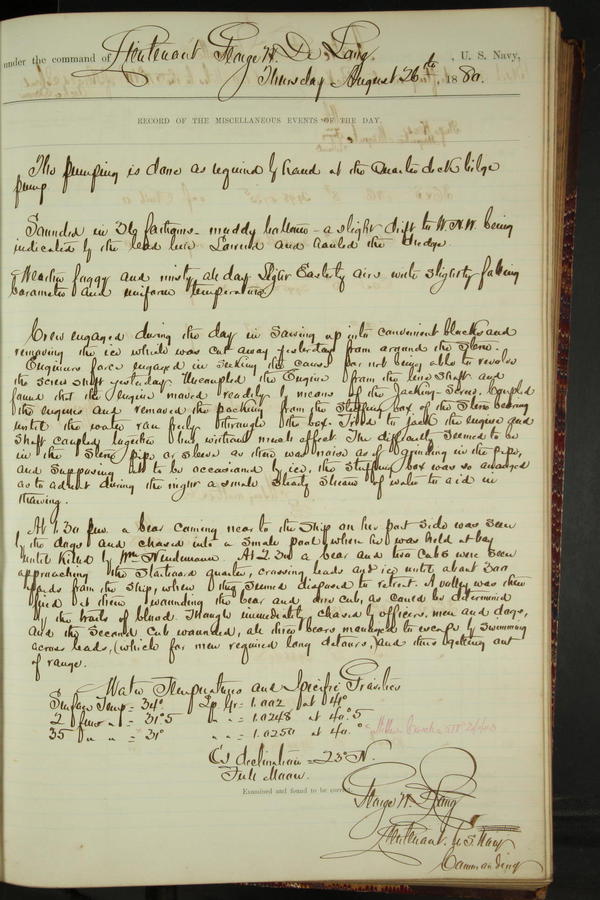 under the command of Lieutenant George W. De Long, U. S. Navy,
Thursday August 26th, 1880.
RECORD OF THE MISCELLANEOUS EVENTS OF THE DAY.
The pumping is done as required by hand at the Quarter deck bilge
pump.
Sounded in 36 fathoms - muddy bottom - a slight drift to W.N.W. being
indicated by the lead line Lowered and hauled the dredge.
Weather foggy and misty all day Light Easterly airs with slightly falling
barometer and uniform temperature
Crew engaged during the day in sawing up into convenient blocks and
removing the ice which was cut away yesterday from around the Stern.
Engineers force engaged in seeking the cause for not being able to revolve
the screw shaft yesterday Uncoupled the Engine from the line shaft and
found that the engine moved readily by means of the Jacking-Screw. Coupled
the engines and removed the packing from the Stuffing box of the Stern bearing
until the water ran freely through the box. Tried to jack the engine and
shaft coupled together but without much effect. The difficulty seemed to be
in the Stern pipe or sleeve as there was noise as of grinding in the pipe,
and supposing it to be occasioned by ice, the stuffing box was so arranged
as to admit during the night a small steady stream of water to aid in
thawing.
At 1.30 p.m. a bear coming near to the Ship on her port side was seen
by the dogs and chased into a small pool, where he was held at bay
until killed by Wm Nindemann. At 2.30 a bear and two cubs were seen
approaching the Starboard quarter, crossing leads and ice until about 300
yards from the ship, when they seemed disposed to retreat. A volley was then
fired at them wounding the bear and one cub, as could be determined
by the trails of blood. Though immediately chased by officers, men and dogs,
and the second cub wounded, all three bears managed to escape by swimming
across leads, (which for men required long detours,) and thus getting out
of range.
Water Temperatures and Specific Gravities
Surface Temp = 34° Sp. Gr = 1.002 at 40°
2 fms " = 31°.5 " " = 1.0248 at 40.°5
35 " " = 31° " " = 1.0250 at 40.°
C's declination = 23° N.
Full Moon.
Examined and found to be correct.
George W. De Long
Lieutenant U.S. Navy
Commanding